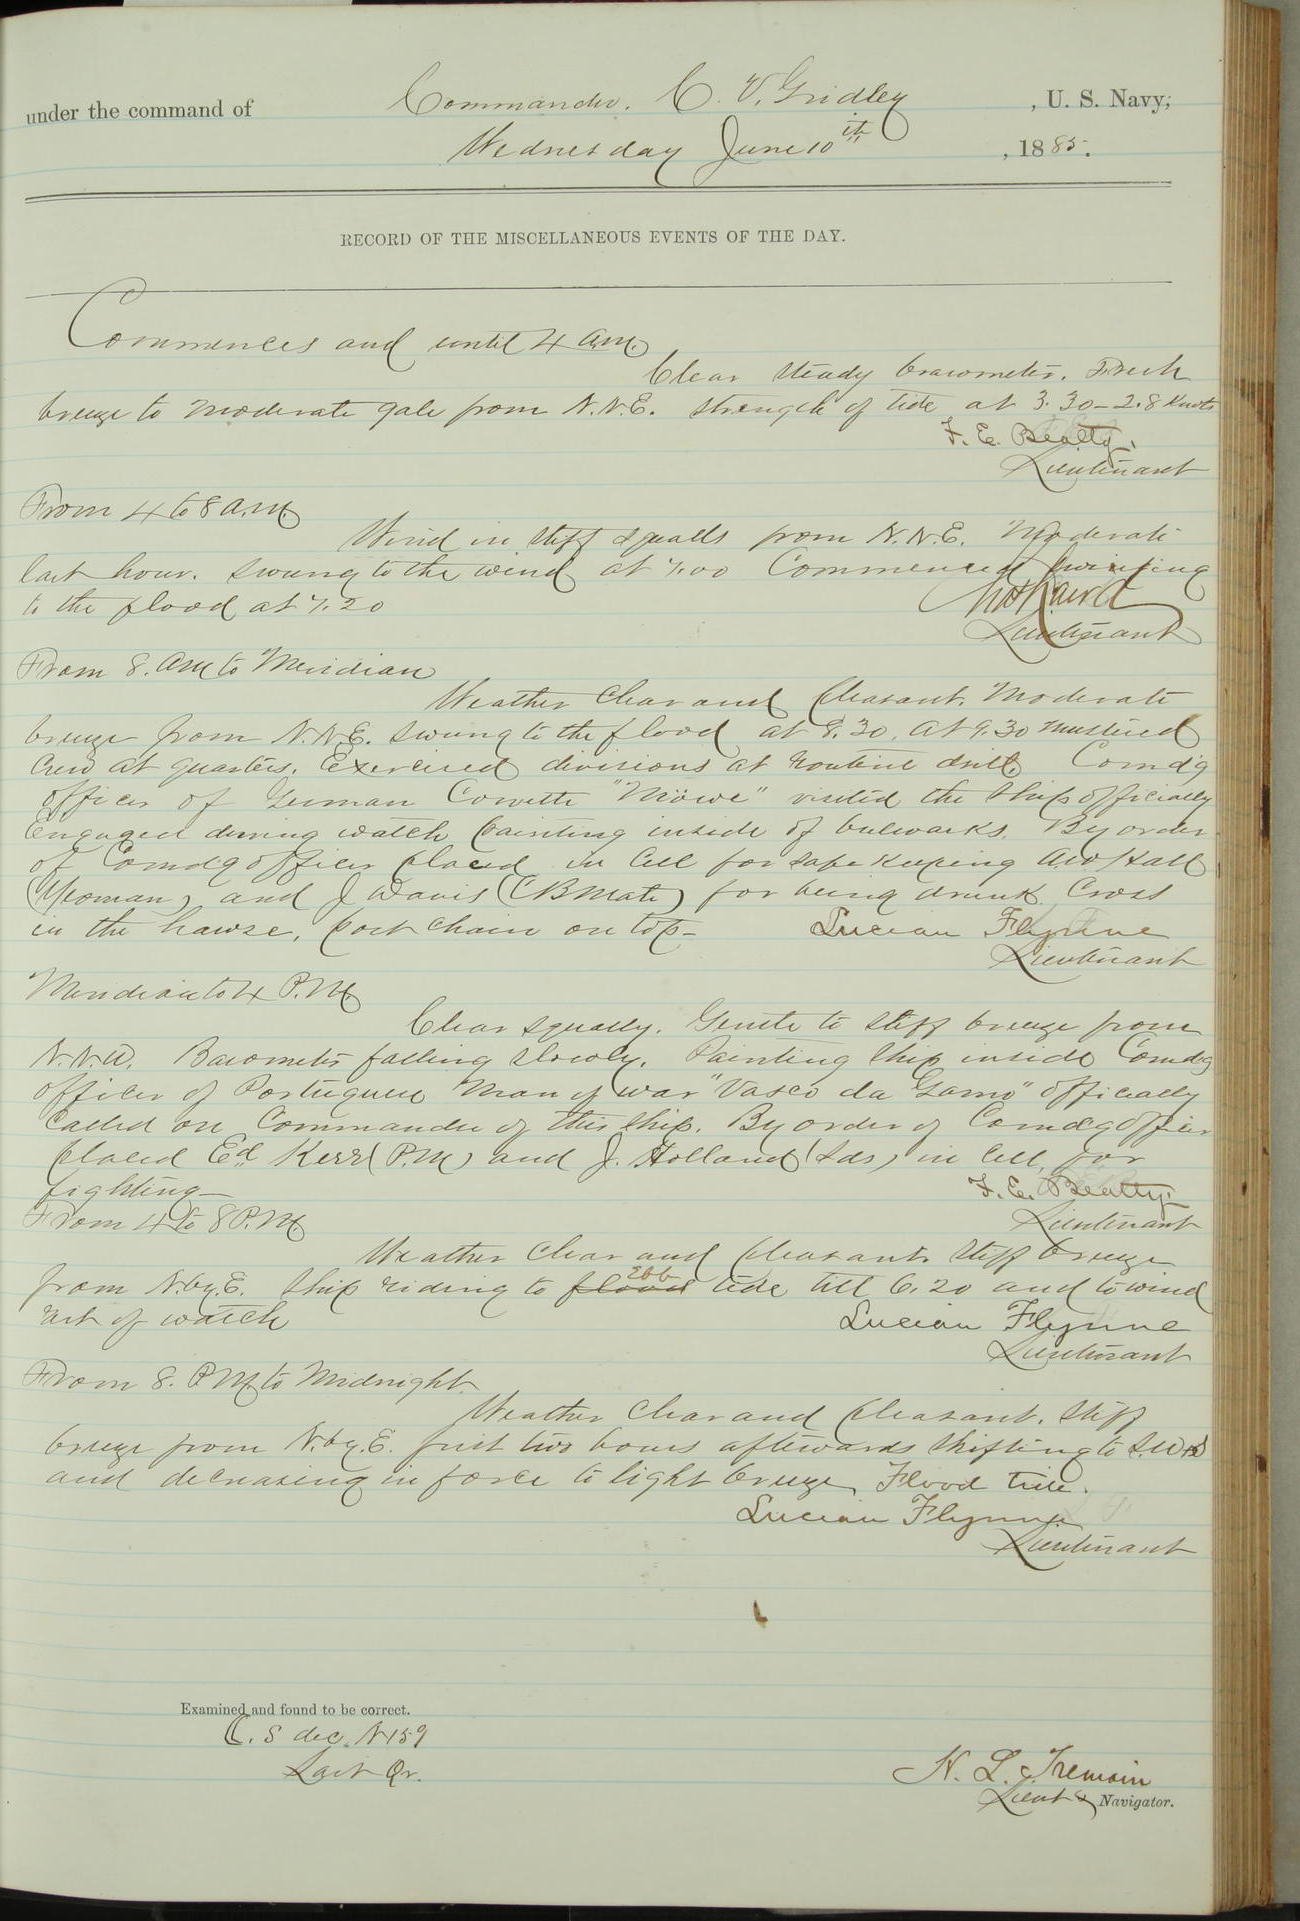 under the command of Commander. C. V. Gridley , U. S. Navy,
Wednesday June 10th , 1885.
RECORD OF THE MISCELLANEOUS EVENTS OF THE DAY.
Commences and until 4 a.m.
Clear steady barometer. Fresh
breeze to moderate gale from N.N.E. strength of tide at 3.30 - 2.8 Knots
F. E. Beatty.
Lieutenant
From 4 to 8 A.M.
Wind in stiff squalls from N.N.E. Moderate
last hour. Swung to the wind at 7.00 Commenced swinging
to the flood at 7.20
Lieutenant
From 8. AM to Meridian
Weather clear and pleasant. Moderate
breeze from N.N.E. swung to the flood at 8.30. At 9.30 mustered
crew at quarters. Exercised divisions at routine drill. Comd'g
officer of German Corvette "Möwe" visited the ship officially
Engaged during watch painting inside of bulwarks. By order
of Comdg officer placed in cell for safe keeping A.W. Hall
(Yeoman) and J Davis (CBMate) for being drunk. Cross
in the hawse, port chain on top -
Lucian Flynne
Lieutenant
Meridian to 4 P.M.
Clear squally. Gentle to stiff breeze from
N.N.W. Barometer falling slowly. Painting ship inside Comdg
officer of Portuguese Man of war "Vasco da Gama" officially
called on Commander of this ship. By order of Comdg officer
placed Ed Kerr (P.M.) and J. Holland (Lds) in cell, for
fighting -
F. E. Beatty.
Lieutenant
From 4 to 8 P.M.
Weather clear and pleasant. Stiff breeze
from N.by.E. Ship riding to flood ebb tide till 6.20 and to wind
rest of watch
Lucian Flynne
Lieutenant
From 8. P.M. to Midnight.
Weather clear and pleasant. Stiff
breeze from N.by.E. first two hours afterwards shifting to S.Wd
and decreasing in force to light breeze. Flood tide.
Lucian Flynne
Lieutenant
Examined and found to be correct.
C. S dec. N 159
Last Qr.
H. L. Tremain
Lieut & Navigator.